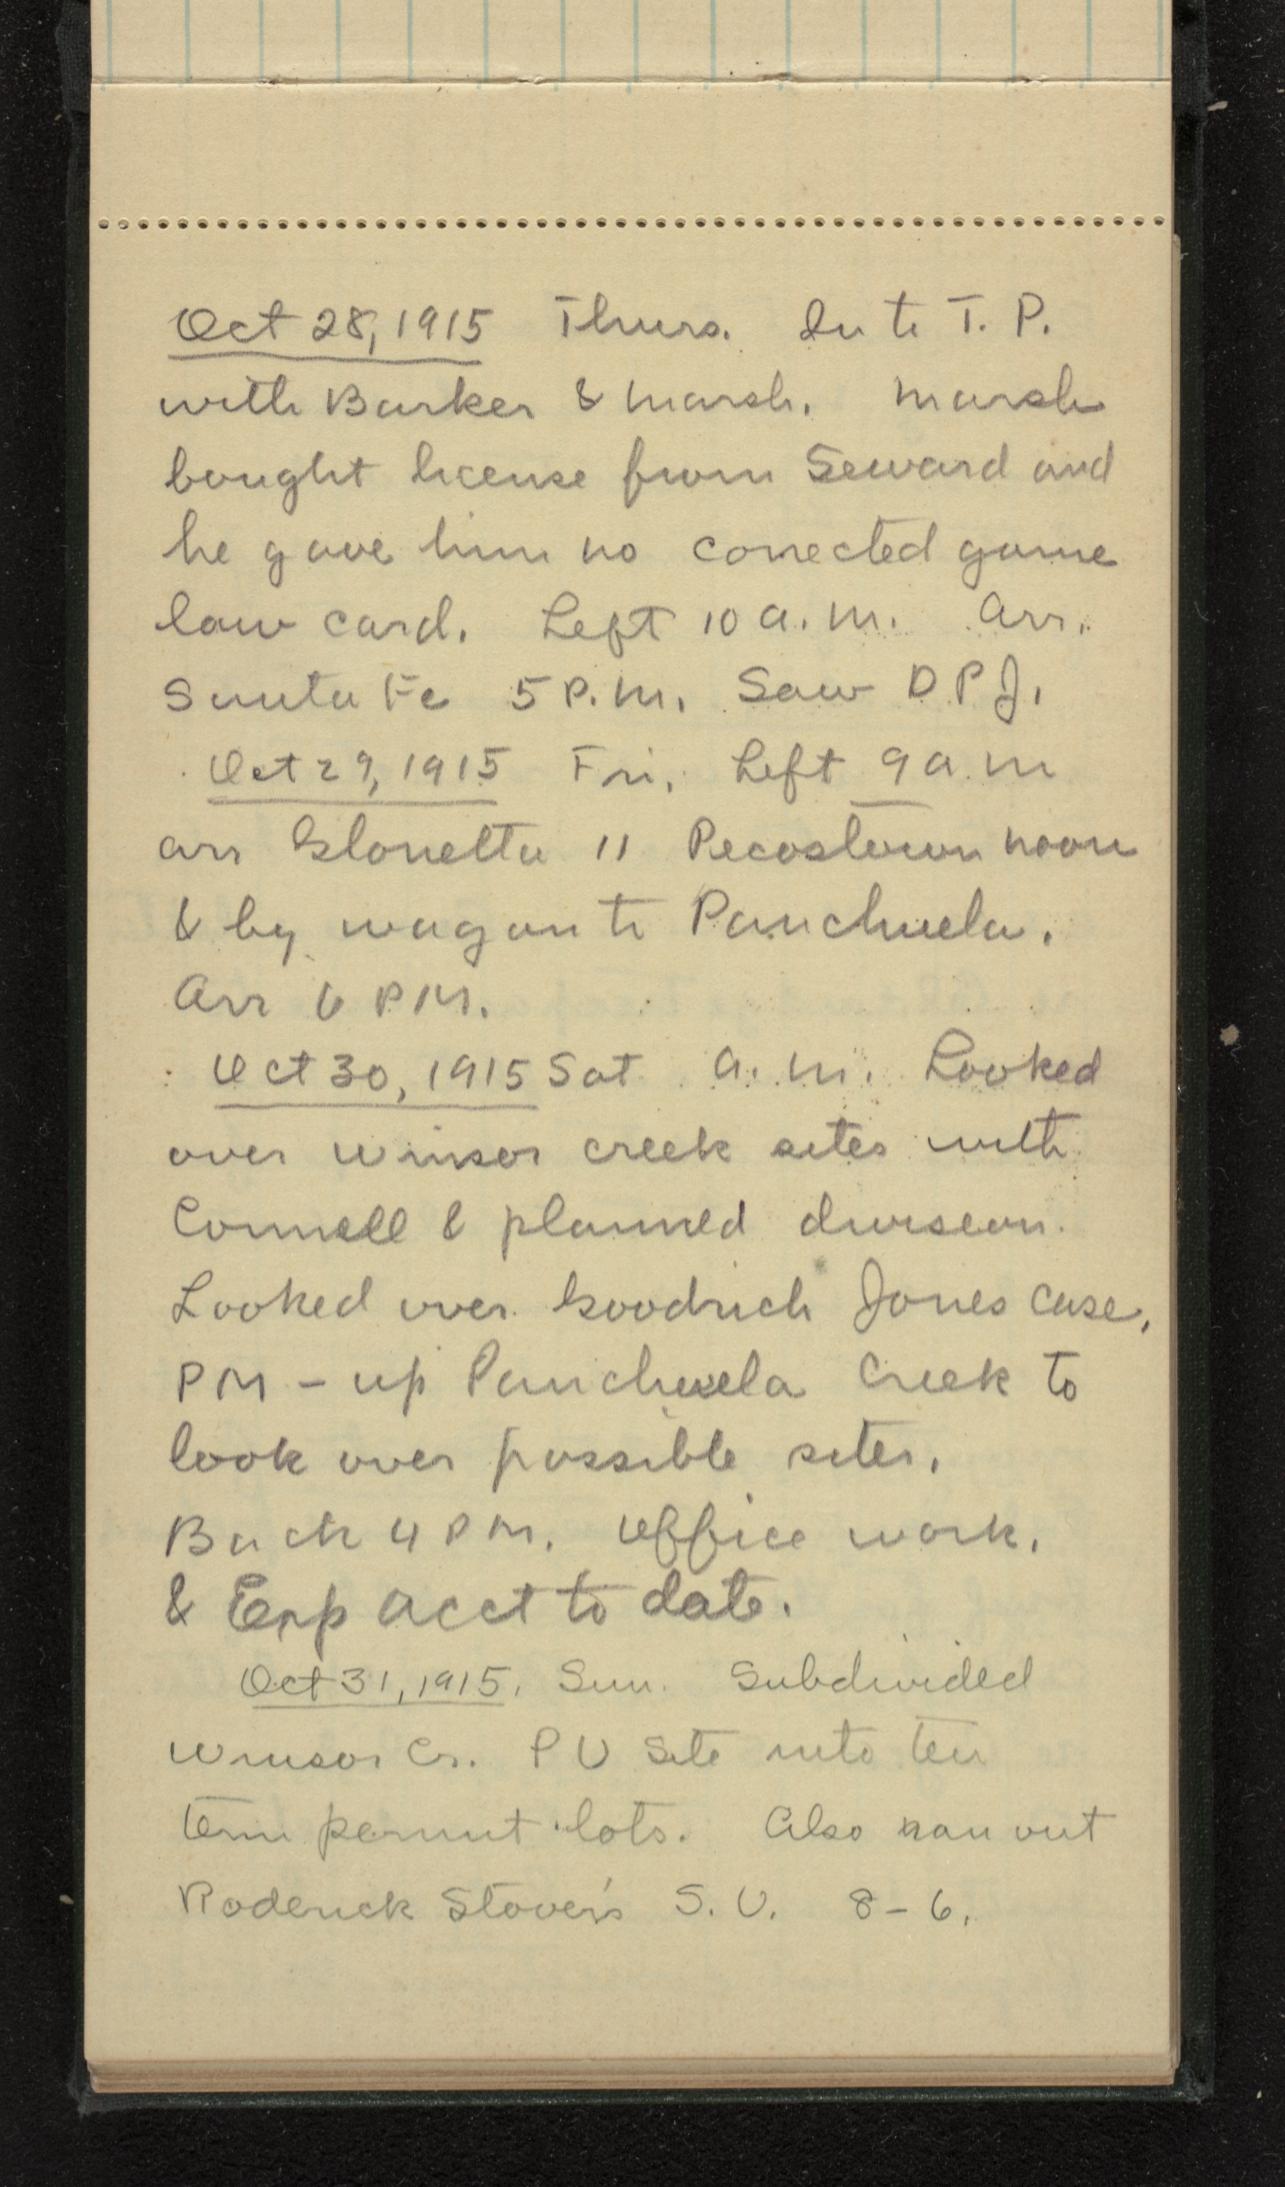 Oct 28, 1915 Thurs. In to T. P.
with Barker & Marsh. Marsh
bought license from Seward and
he gave him no corrected game
law card. Left 10 a.m. Arr.
Santa Fe 5 P.M. Saw D P J.
Oct 29, 1915 Fri. Left 9 a.m
arr Glorietta 11 Pecostown noon
& by wagon to Panchuela.
Arr 6 PM.
Oct 30, 1915 Sat a.m. Looked
over Winsor creek sites with
Connell & planned division.
Looked over Goodrich Jones case.
PM - up Panchuela Creek to
look over possible sites.
Back 4 PM. Office work.
& Exp Acct to date.
Oct 31, 1915. Sun. Subdivided
Winsor Cr. P U Site into ten
term permit lots. Also ran out
Roderick Stover's S. U. 8-6.